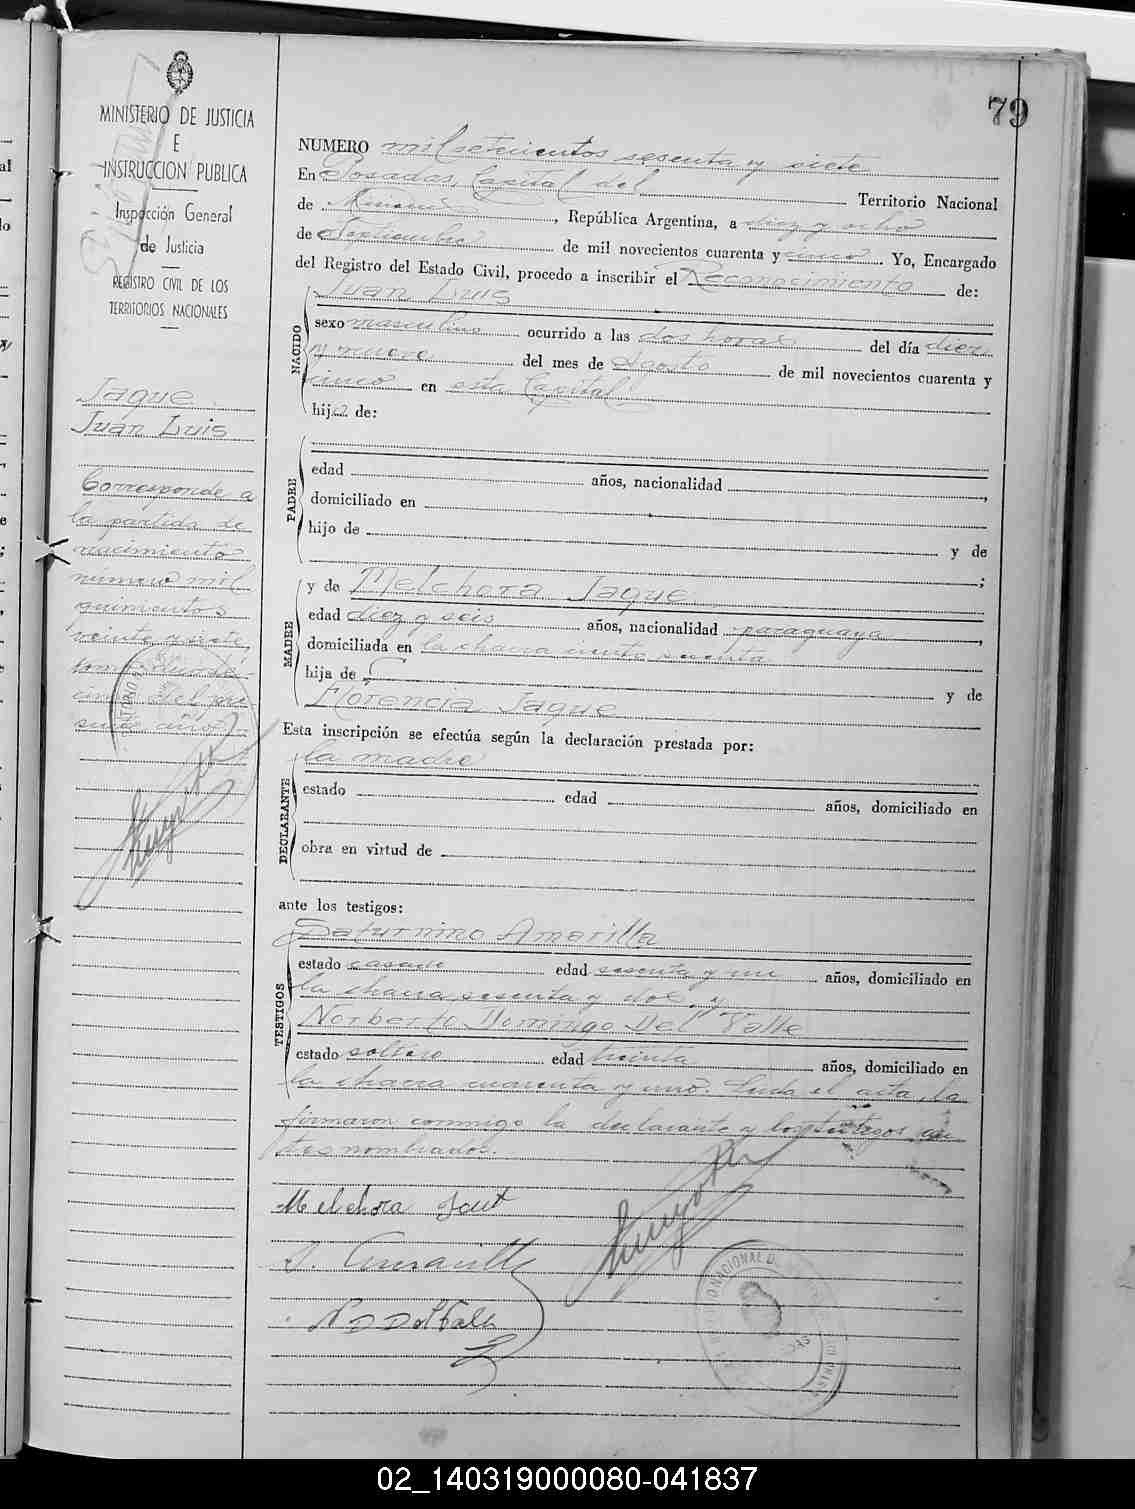 79
MINISTERIO DE JUSTICIA
E
INSTRUCCION PUBLICA
Inspección General
de Justicia
REGISTRO CIVIL DE LOS
TERRITORIOS NACIONALES
Jaque
Juan Luis
Corresponde a
la partida de
nacimiento
número mil
quinientos
veinte y siete,
tomo
del pre-
sente año
NUMERO mil setecientos sesenta y siete
En Posadas, Capital del Territorio Nacional
de Misiones, República Argentina, a diez y ocho
de Septiembre de mil novecientos cuarenta y cinco. Yo, Encargado
del Registro del Estado Civil, procedo a inscribir el Reconocimiento de:
Juan Luis
NACIDO
sexo masculino ocurrido a las dos horas del día diez
y nueve del mes de Agosto de mil novecientos cuarenta y
cinco en esta Capital
hijo de:
PADRE
edad años, nacionalidad ,
domiciliado en
hijo de y de
;
MADRE
y de Melchora Jaque
edad diez y seis años, nacionalidad paraguaya,
domiciliada en la chacra ciento sesenta
hija de y de
Florencia Jaque
Esta inscripción se efectúa según la declaración prestada por:
la madre
DECLARANTE
estado edad años, domiciliado en
obra en virtud de
ante los testigos:
Saturnino Amarilla
TESTIGOS
estado casado edad sesenta y un años, domiciliado en
la chacra sesenta y dos, y
Norberto Domingo Del Valle
estado soltero edad treinta años, domiciliado en
la chacra cuarenta y uno. Leida el acta, la
firmaron conmigo la declarante y los testigos an
tes nombrados.
Melchora
S. Amarilla
N D Del Valle
02_140319000080-041837